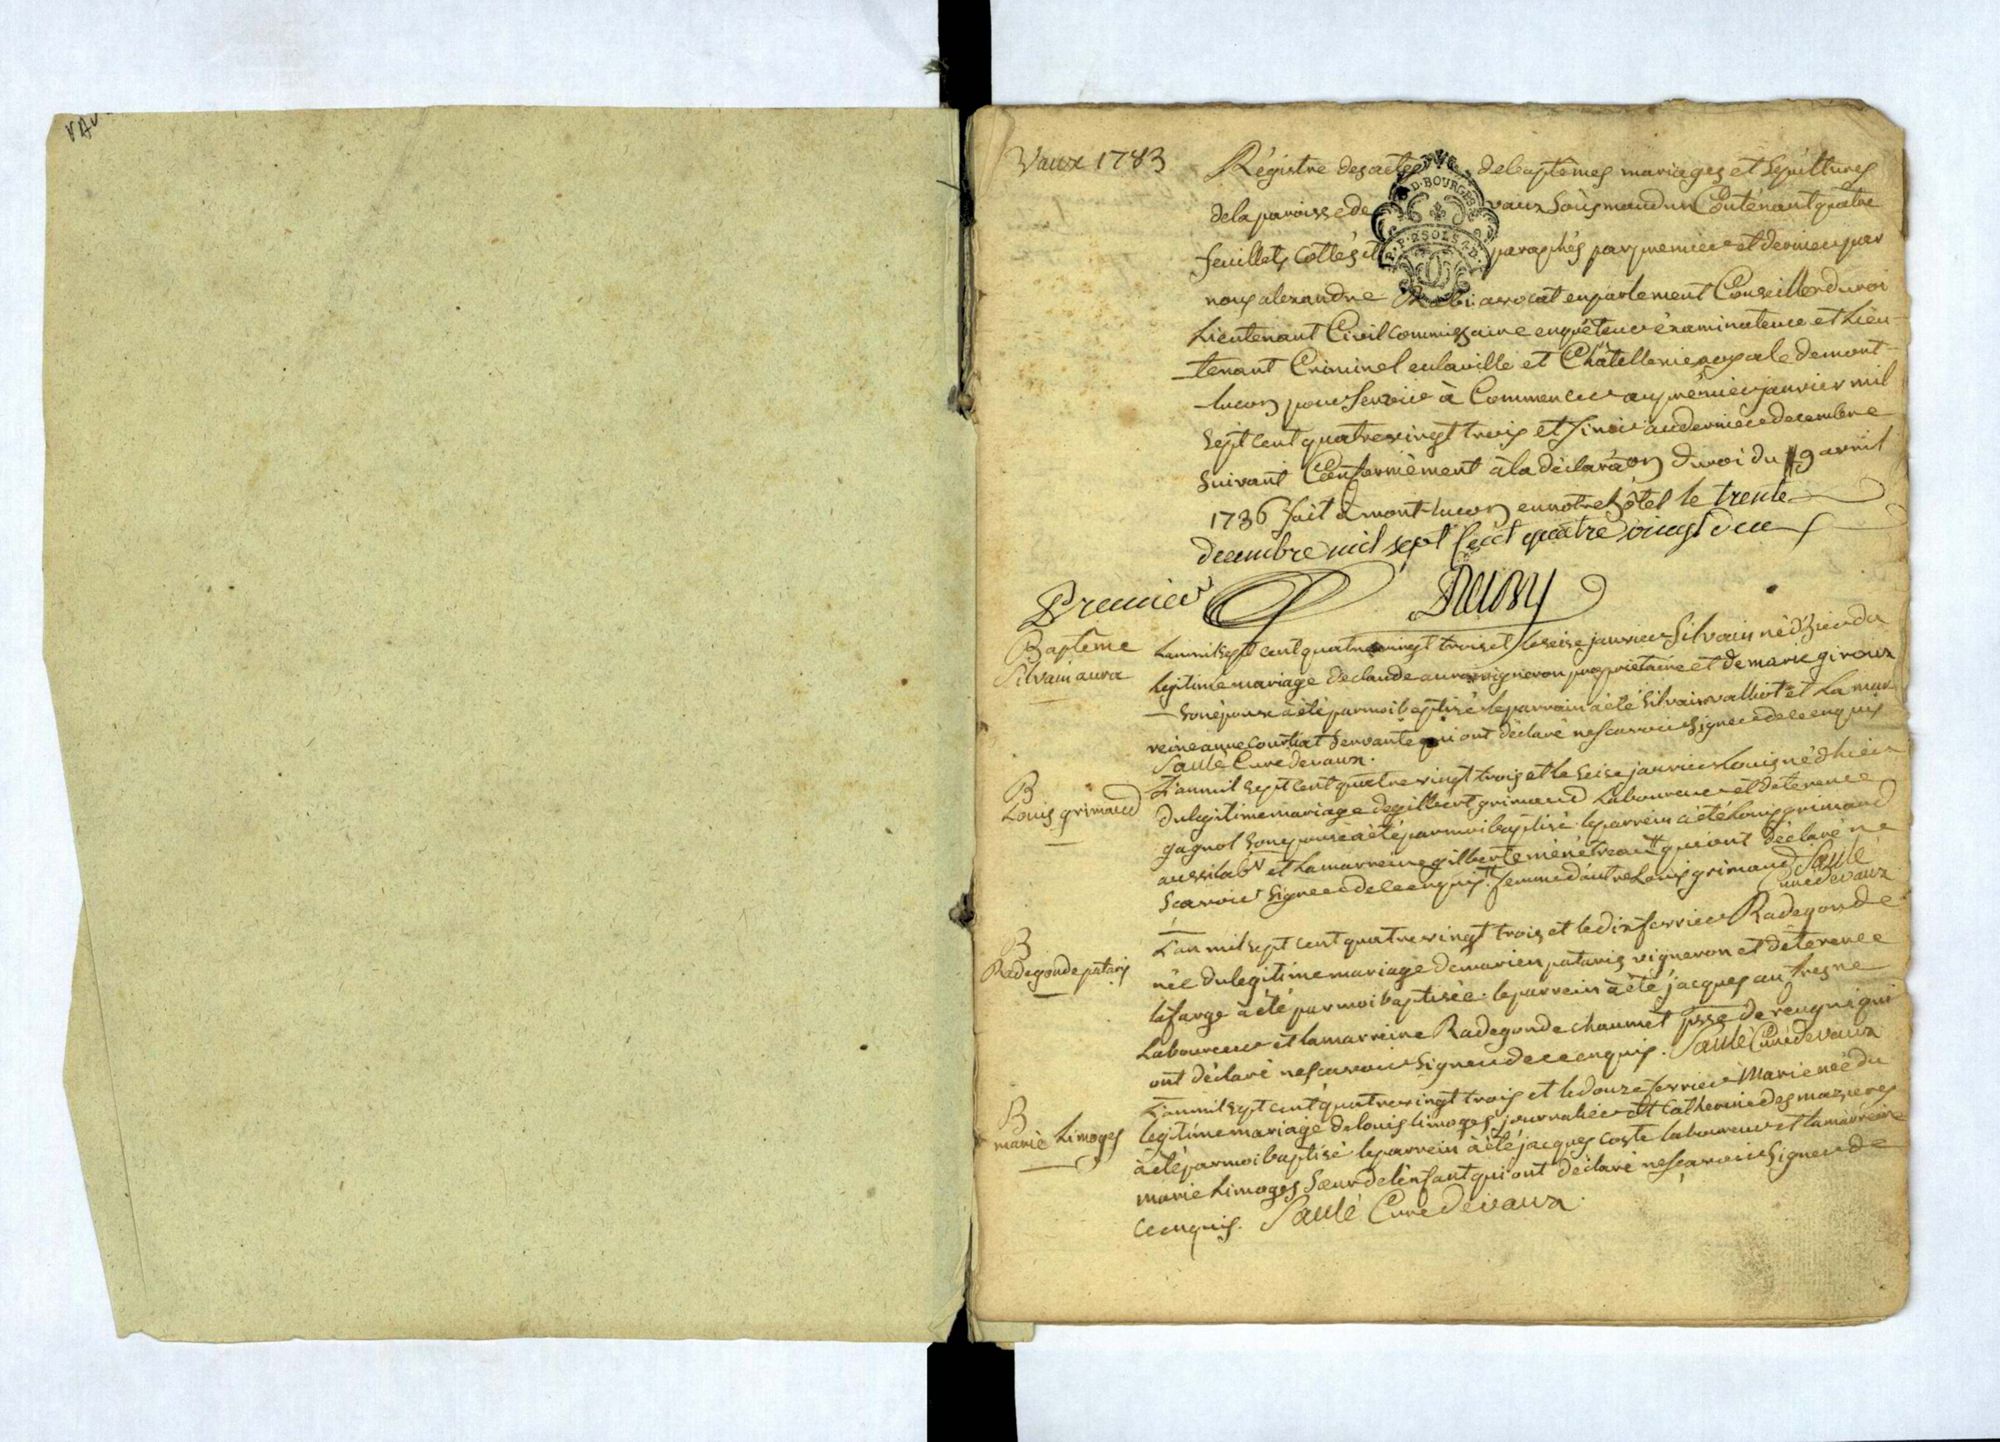 VAU
Vaux 1783
Régistre des actes de baptêmes mariages et sépultures
de la paroisse de vaux sous maudun Contenant quatre
feuillets cottés et paraphés par premier et dernier par
nous alexandre avocat en parlement Conseiller du roi
Lieutenant Civil commissaire enquêteur éxaminateur et Lieu-
tenant Criminel en la ville et Châtellerie royale de mont-
-lucon pour servir à Commencer au prémier janvier mil
sept cent quatrevingt trois et finir au dernier decembre
suivant Conformèment à la déclaraon du roi du 9 avril
1736 fait à mont-lucon en notre hôtel le trente
decembre mil sept cent quatre vingt deux
Premier
D. BOURGES
2 SOLS
Baptême
Silvain aura
L'an mil sept cent quatre vingt trois et le seise janvier Silvain né d'hier du
légitime mariage de claude aura vigneron propriétaire et de marie giroux
son épouse à été par moi baptisé le parrain à été Silvain valliot et La mar
reine anne courtiat servante qui ont déclaré ne scavoir signer de ce enquis
Saulé Curé de vaux.
B
Louis grimaud
L'an mil sept cent quatre vingt trois et le seise janvier Louis né d'hier
du légitime mariage de gilbert grimaud Laboureur et de terence
gagnol son epouse à été par moi baptisé le parrein à été Louis grimaud
aussi labr et la marreine gilberte ménétreau qui ont déclaré ne
scavoir signer de ce enquis. femme d'autre Louis grimaud Saulé
curé de vaux
B
Radegonde pataris
L'an mil sept cent quatre vingt trois et le dix fevrier Radegonde
née du légitime mariage de marien pataris vigneron et de terence
lafarge à été par moi baptisée. le parrein à été jacques aufresne
Laboureur et la marreine Radegonde chaumet psse de reugni qui
ont déclaré ne scavoir signer de ce enquis. Saulé Curé de vaux
B
marie Limoges
L'an mil sept cent quatre vingt trois et le douze fevrier Marie née du
legitime mariage de louis limoges journalier et catherine desmazieres
à été par moi baptisé le parrein à été jacques coste laboureur et la marreine
marie Limoges sœur de l'enfant qui ont déclaré ne scavoir signer de
ce enquis. Saulé Curé de vaux.